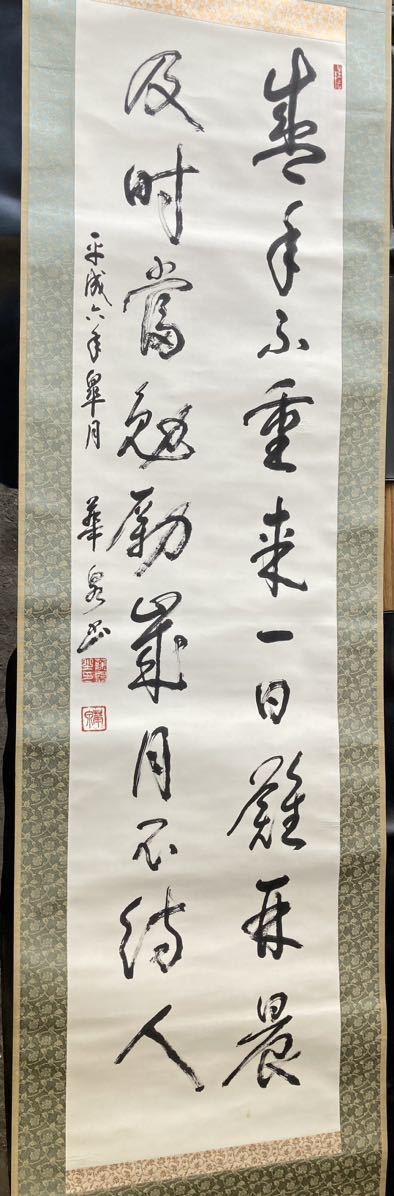 盛年不重来一日難再晨
及時當勉勵歳月不待人
平成六年皐月 華泉書